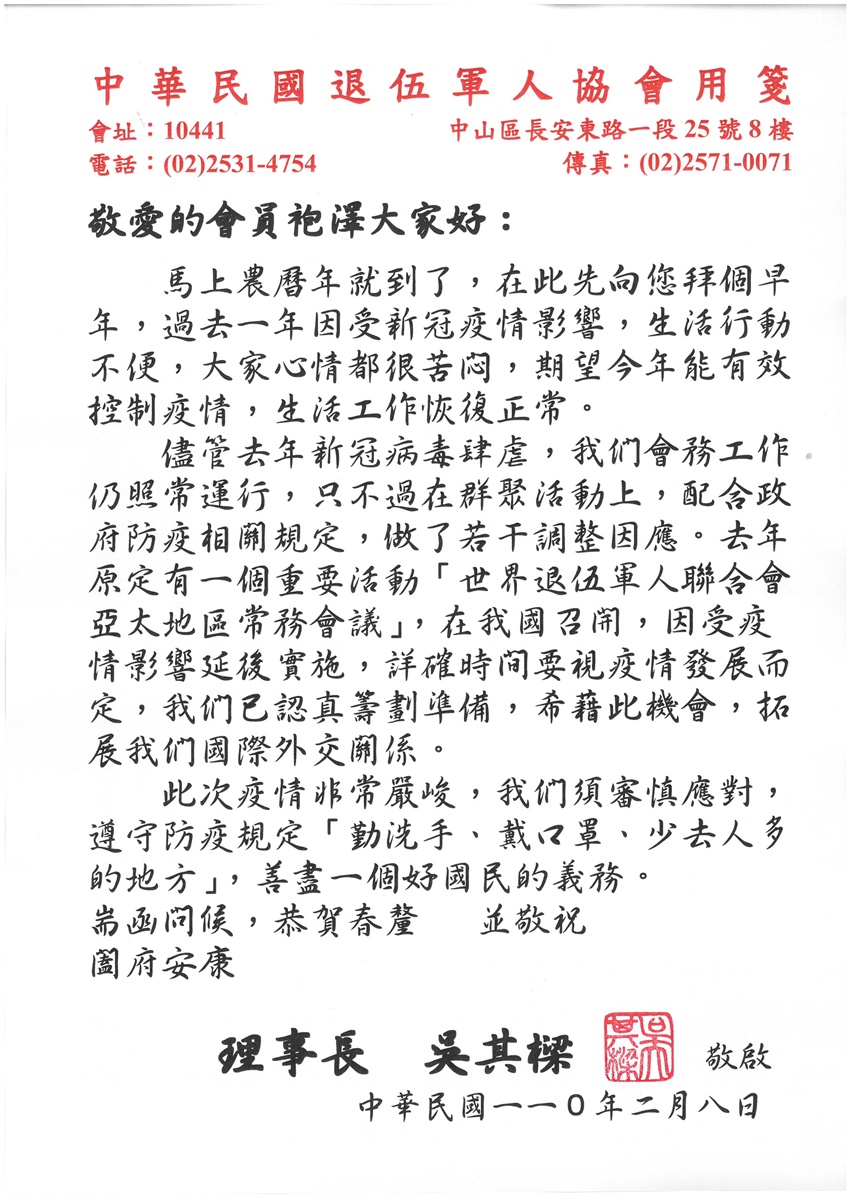 中華民國退伍軍人協會用箋
會址：10441 中山區長安東路一段25號8樓
電話：(02)2531-4754 傳真：(02)2571-0071
敬愛的會員袍澤大家好：
馬上農曆年就到了，在此先向您拜個早
年，過去一年因受新冠疫情影響，生活行動
不便，大家心情都很苦悶，期望今年能有效
控制疫情，生活工作恢復正常。
儘管去年新冠病毒肆虐，我們會務工作
仍照常運行，只不過在群聚活動上，配合政
府防疫相關規定，做了若干調整因應。去年
原定有一個重要活動「世界退伍軍人聯合會
亞太地區常務會議」，在我國召開，因受疫
情影響延後實施，詳確時間要視疫情發展而
定，我們已認真籌劃準備，希藉此機會，拓
展我們國際外交關係。
此次疫情非常嚴峻，我們須審慎應對，
遵守防疫規定「勤洗手、戴口罩、少去人多
的地方」，善盡一個好國民的義務。
耑函問候，恭賀春釐　並敬祝
闔府安康
理事長　吳其樑 吳其樑 敬啟
中華民國一一０年二月八日